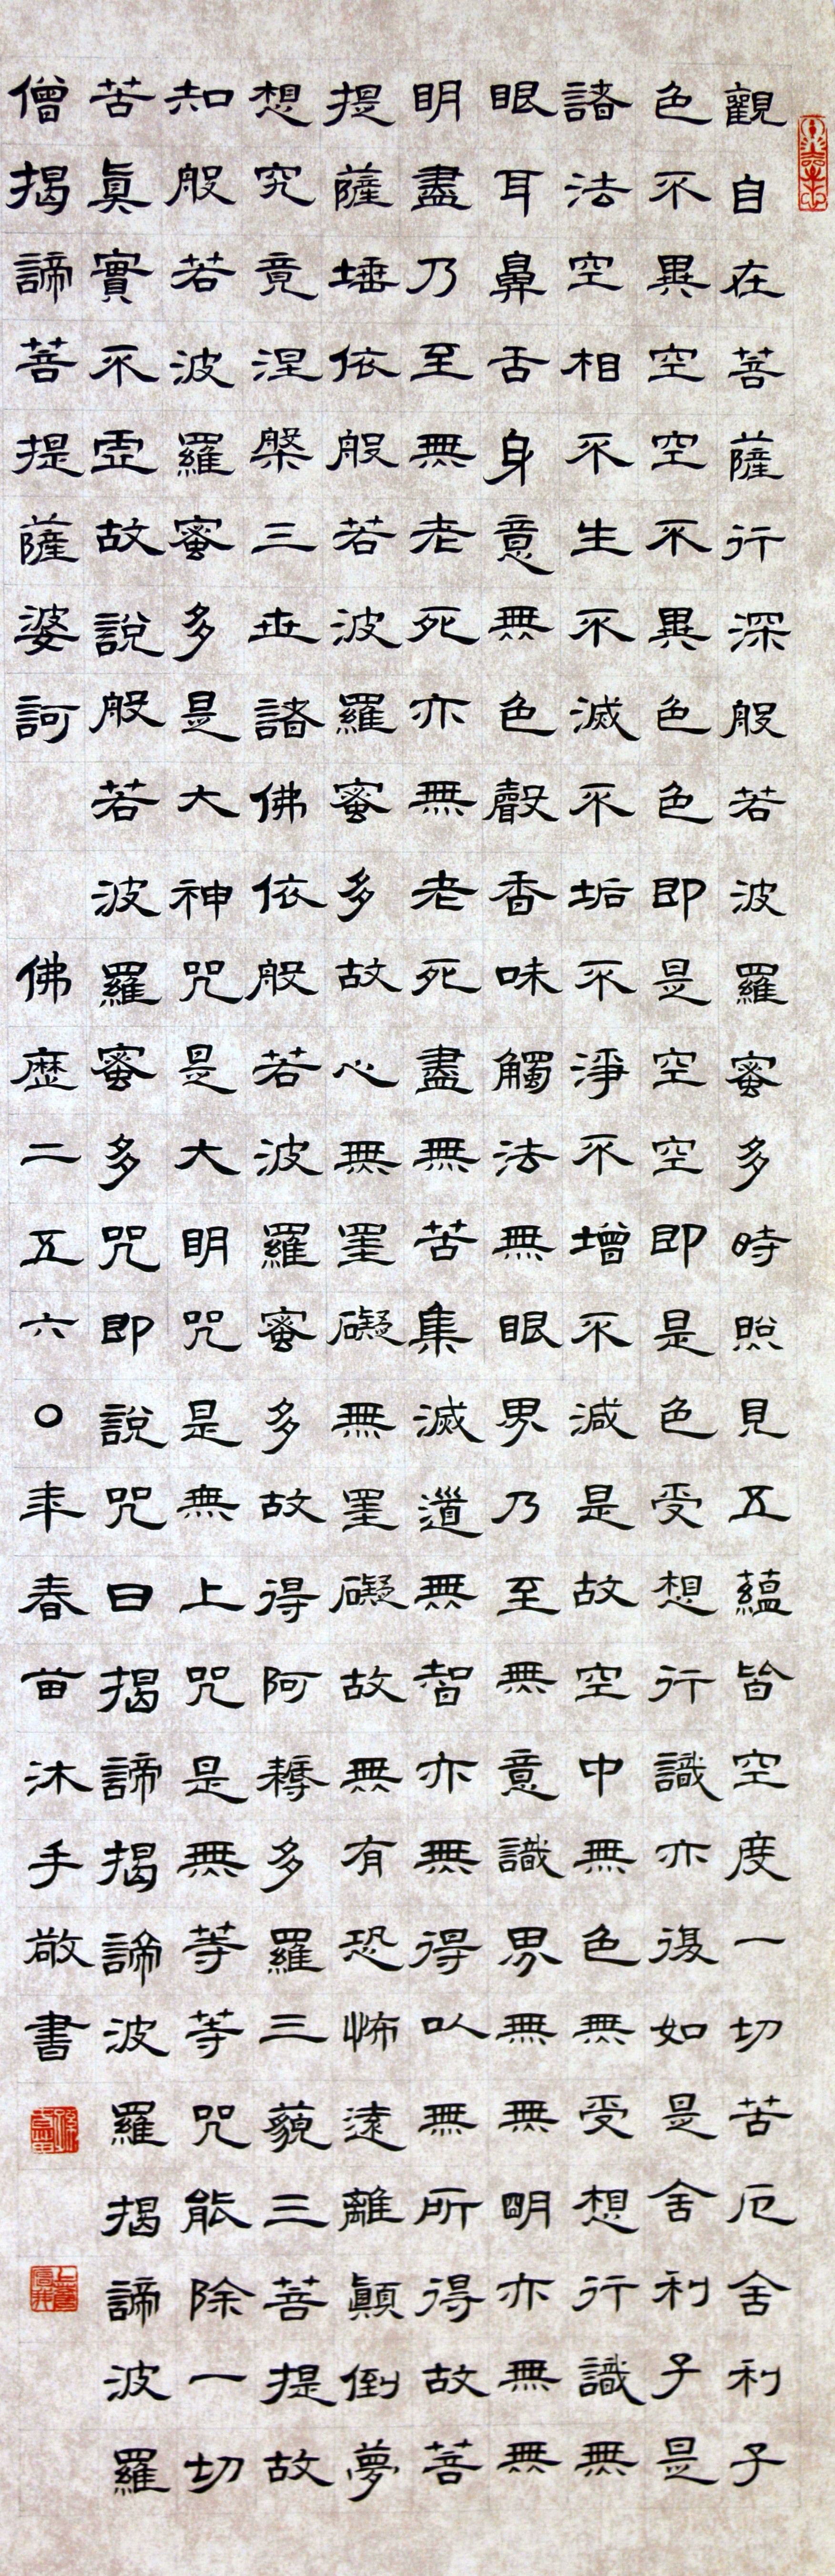 觀自在菩薩行深般若波羅蜜多時照見五蘊皆空度一切苦厄舍利子
色不異空空不異色色即是空空即是色受想行識亦復如是舍利子是
諸法空相不生不滅不垢不淨不增不減是故空中無色無受想行識無
眼耳鼻舌身意無色聲香味觸法無眼界乃至無意識界無無明亦無無
明盡乃至無老死亦無老死盡無苦集滅道無智亦無得以無所得故菩
提薩埵依般若波羅蜜多故心無罣礙無罣礙故無有恐怖遠離顛倒夢
想究竟涅槃三世諸佛依般若波羅蜜多故得阿耨多羅三藐三菩提故
知般若波羅蜜多是大神咒是大明咒是無上咒是無等等咒能除一切
苦眞實不虛故說般若波羅蜜多咒即說咒曰揭諦揭諦波羅揭諦波羅
僧揭諦菩提薩婆訶 佛歷二五六〇年春苗沐手敬書